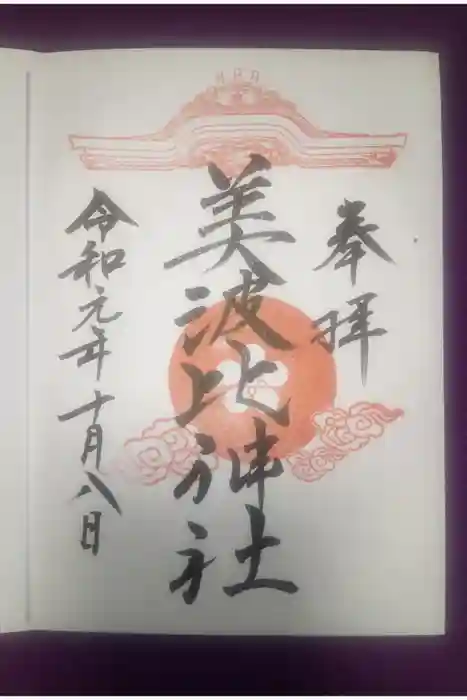 奉拝
美波比神社
令和元年十月八日